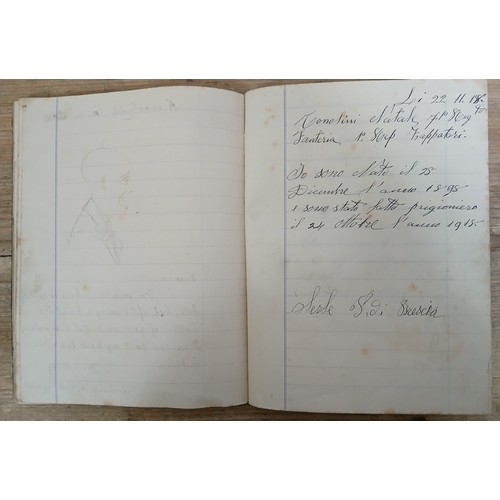 Li 22. 11. 18.
Tonolini Natale 71º Regto
Fanteria 1º Rep Zappatori.
Io sono Nato il 25
Dicembre l'anno 1895
e sono stato fatto prigioniero
il 24 Ottobre l'anno 1918.
P. di Brescia